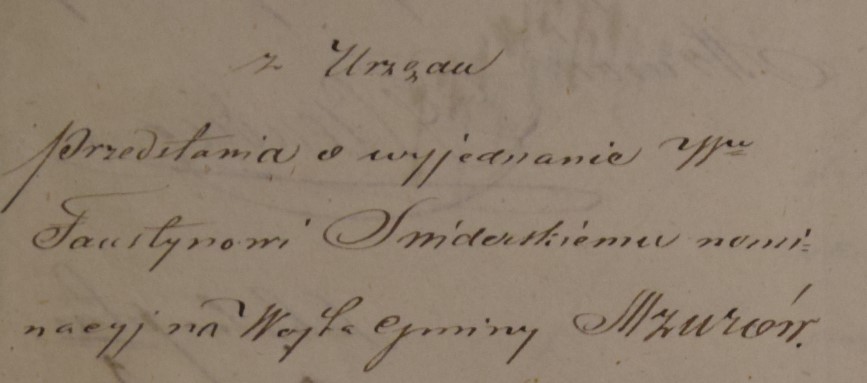 z Urzędu
Przedstania o wyjednanie JPu
Faustynowi Sniderskiemu nomi=
nacyj na Wojta Gminy Mzurów.